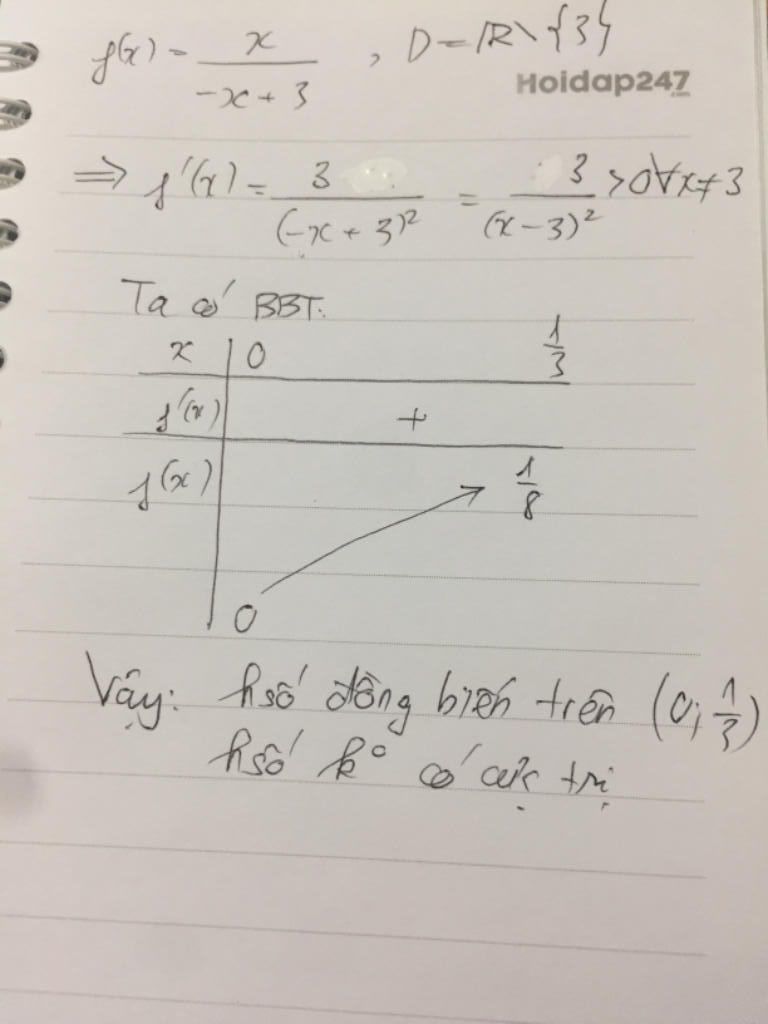 f(x) = x/(-x + 3) , D = ℝ \ {3}
Hoidap247
⇒ f'(x) = 3/(-x + 3)² = 3/(x - 3)² > 0 ∀x ≠ 3
Ta có BBT:
x | 0 1/3
f'(x) | +
f(x) | 0 ↗ 1/8
Vậy: hsố đồng biến trên (0; 1/3)
hsố k° có cực trị